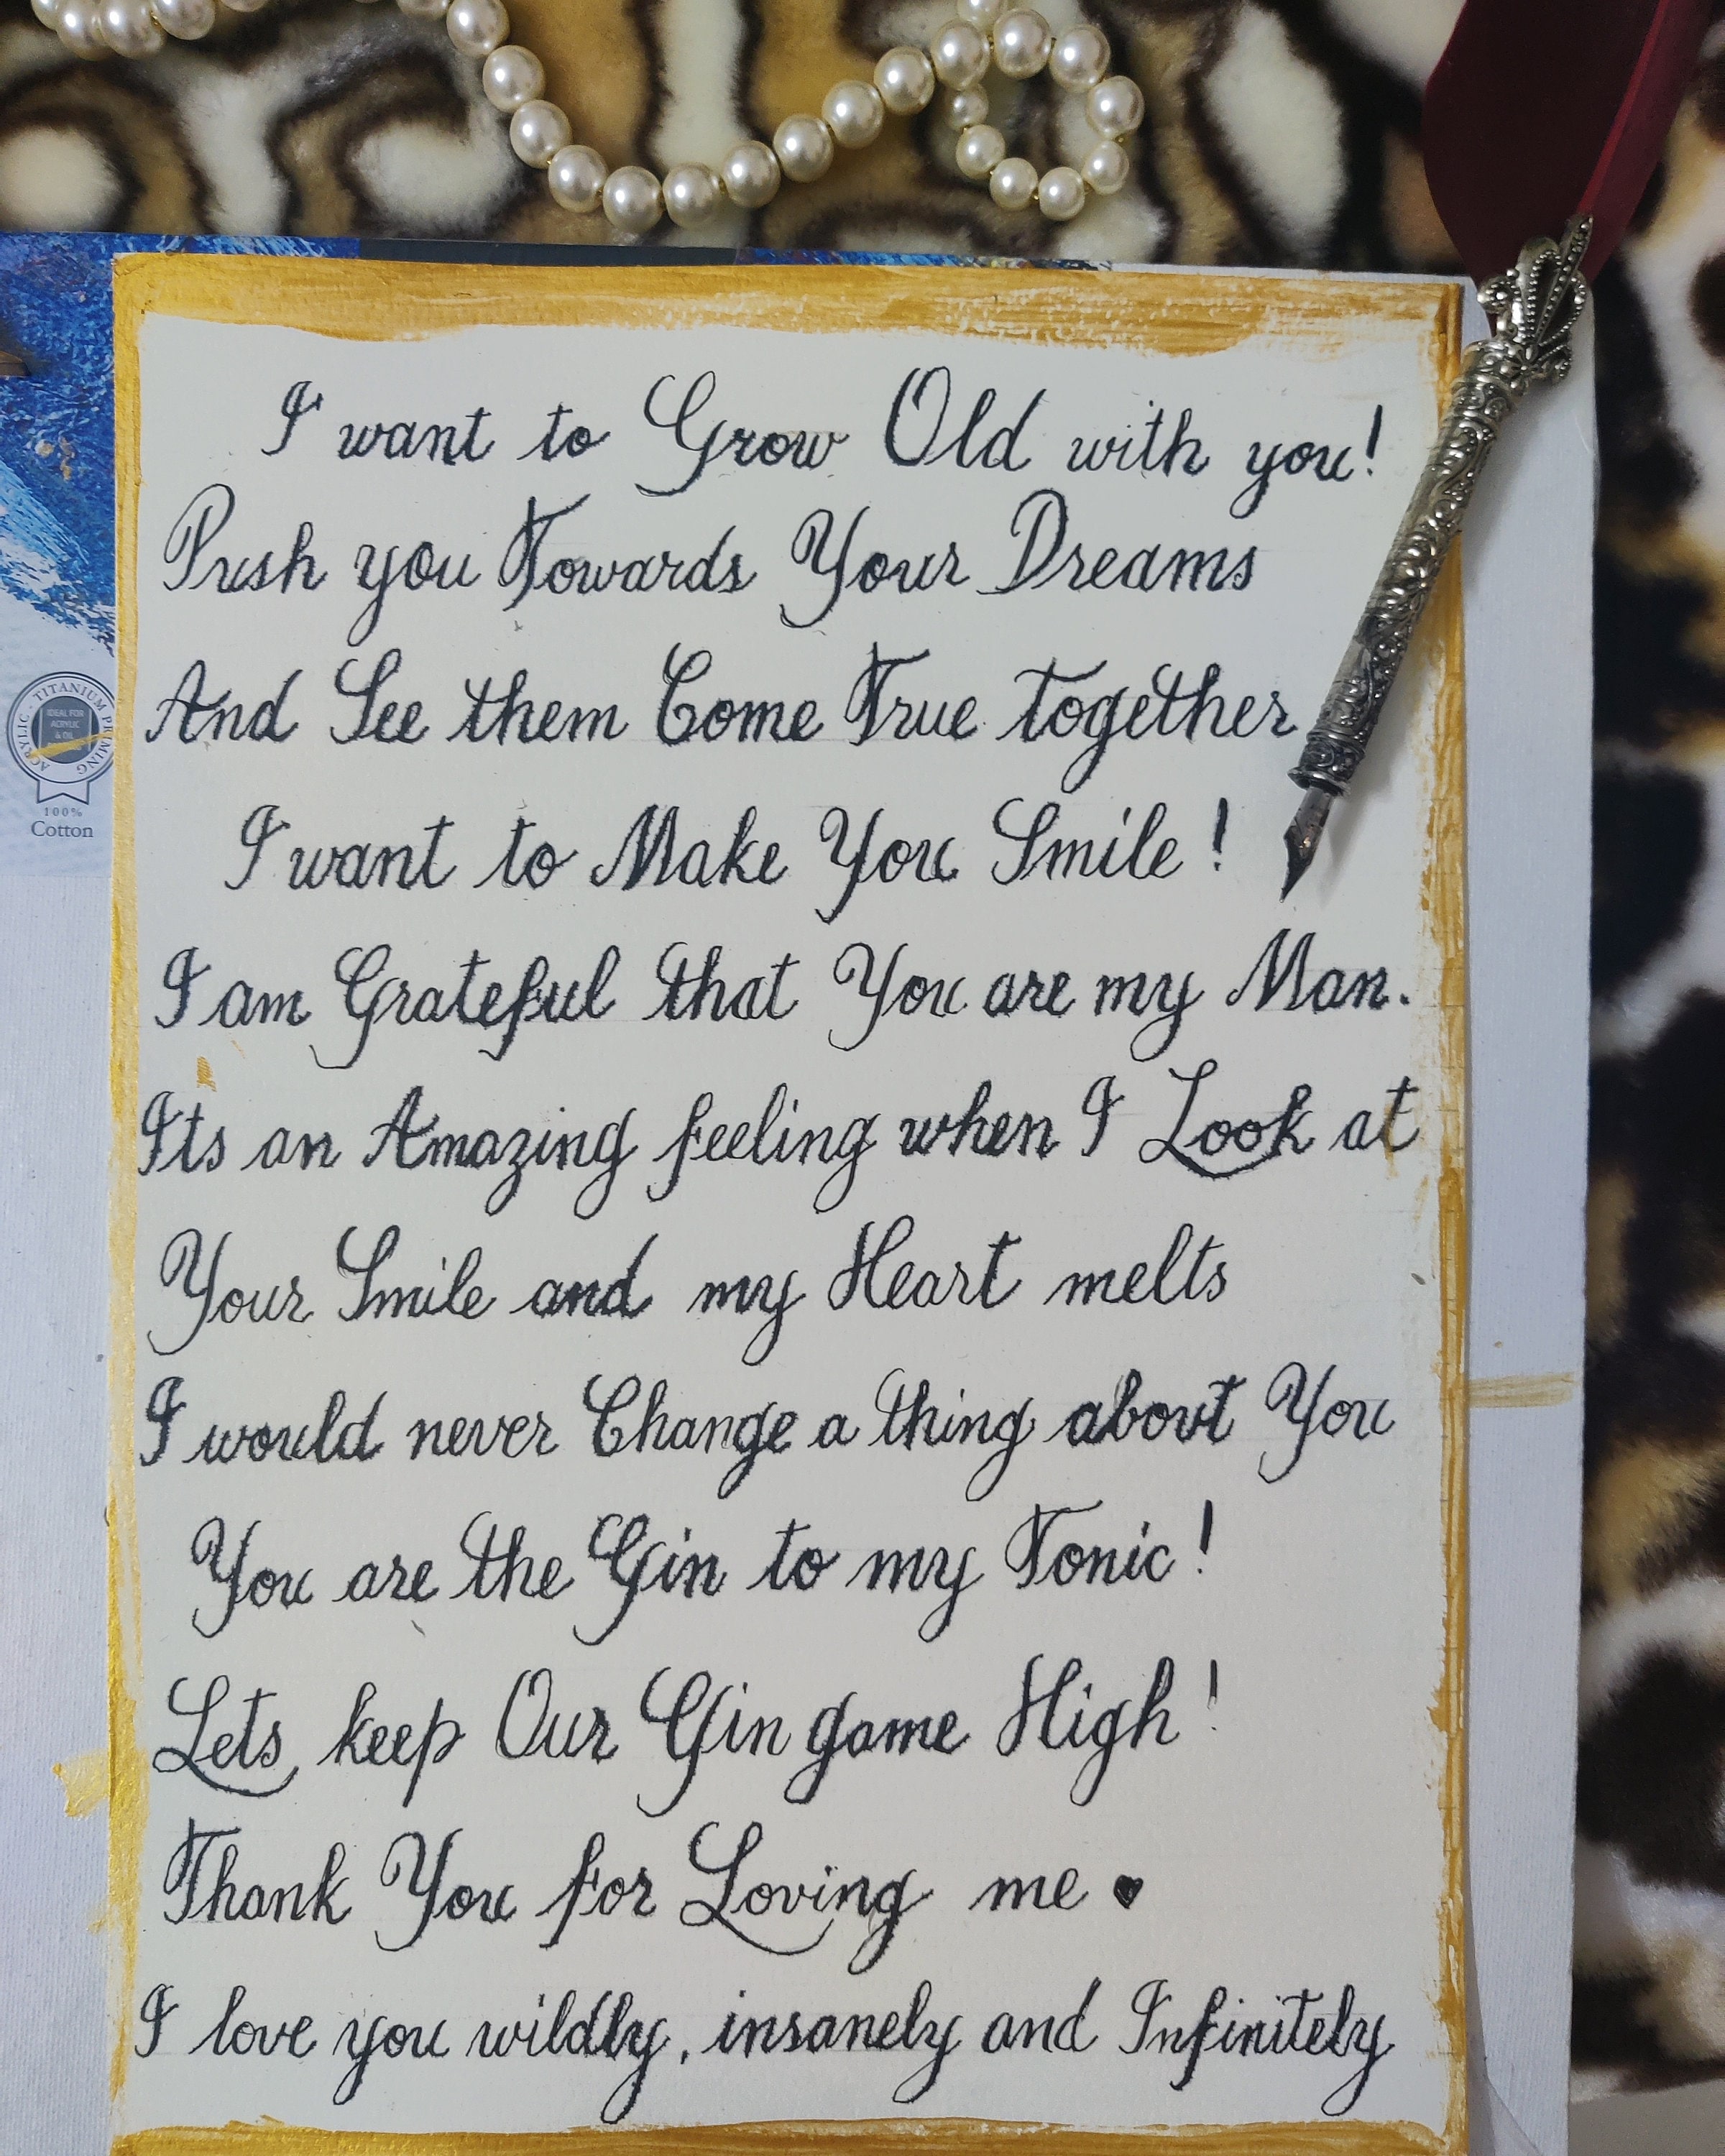 I want to Grow Old with you!
Push you Towards Your Dreams
And See them Come True together
I want to Make You Smile!
I am Grateful that You are my Man.
Its an Amazing feeling when I Look at
Your Smile and my Heart melts
I would never Change a thing about You
You are the Gin to my Tonic!
Lets keep Our Gin game High!
Thank You for Loving me ♥
I love you wildly, insanely and Infinitely
TITANIUM PRIMING
ACRYLIC
IDEAL FOR
ACRYLIC
& OIL
100%
Cotton